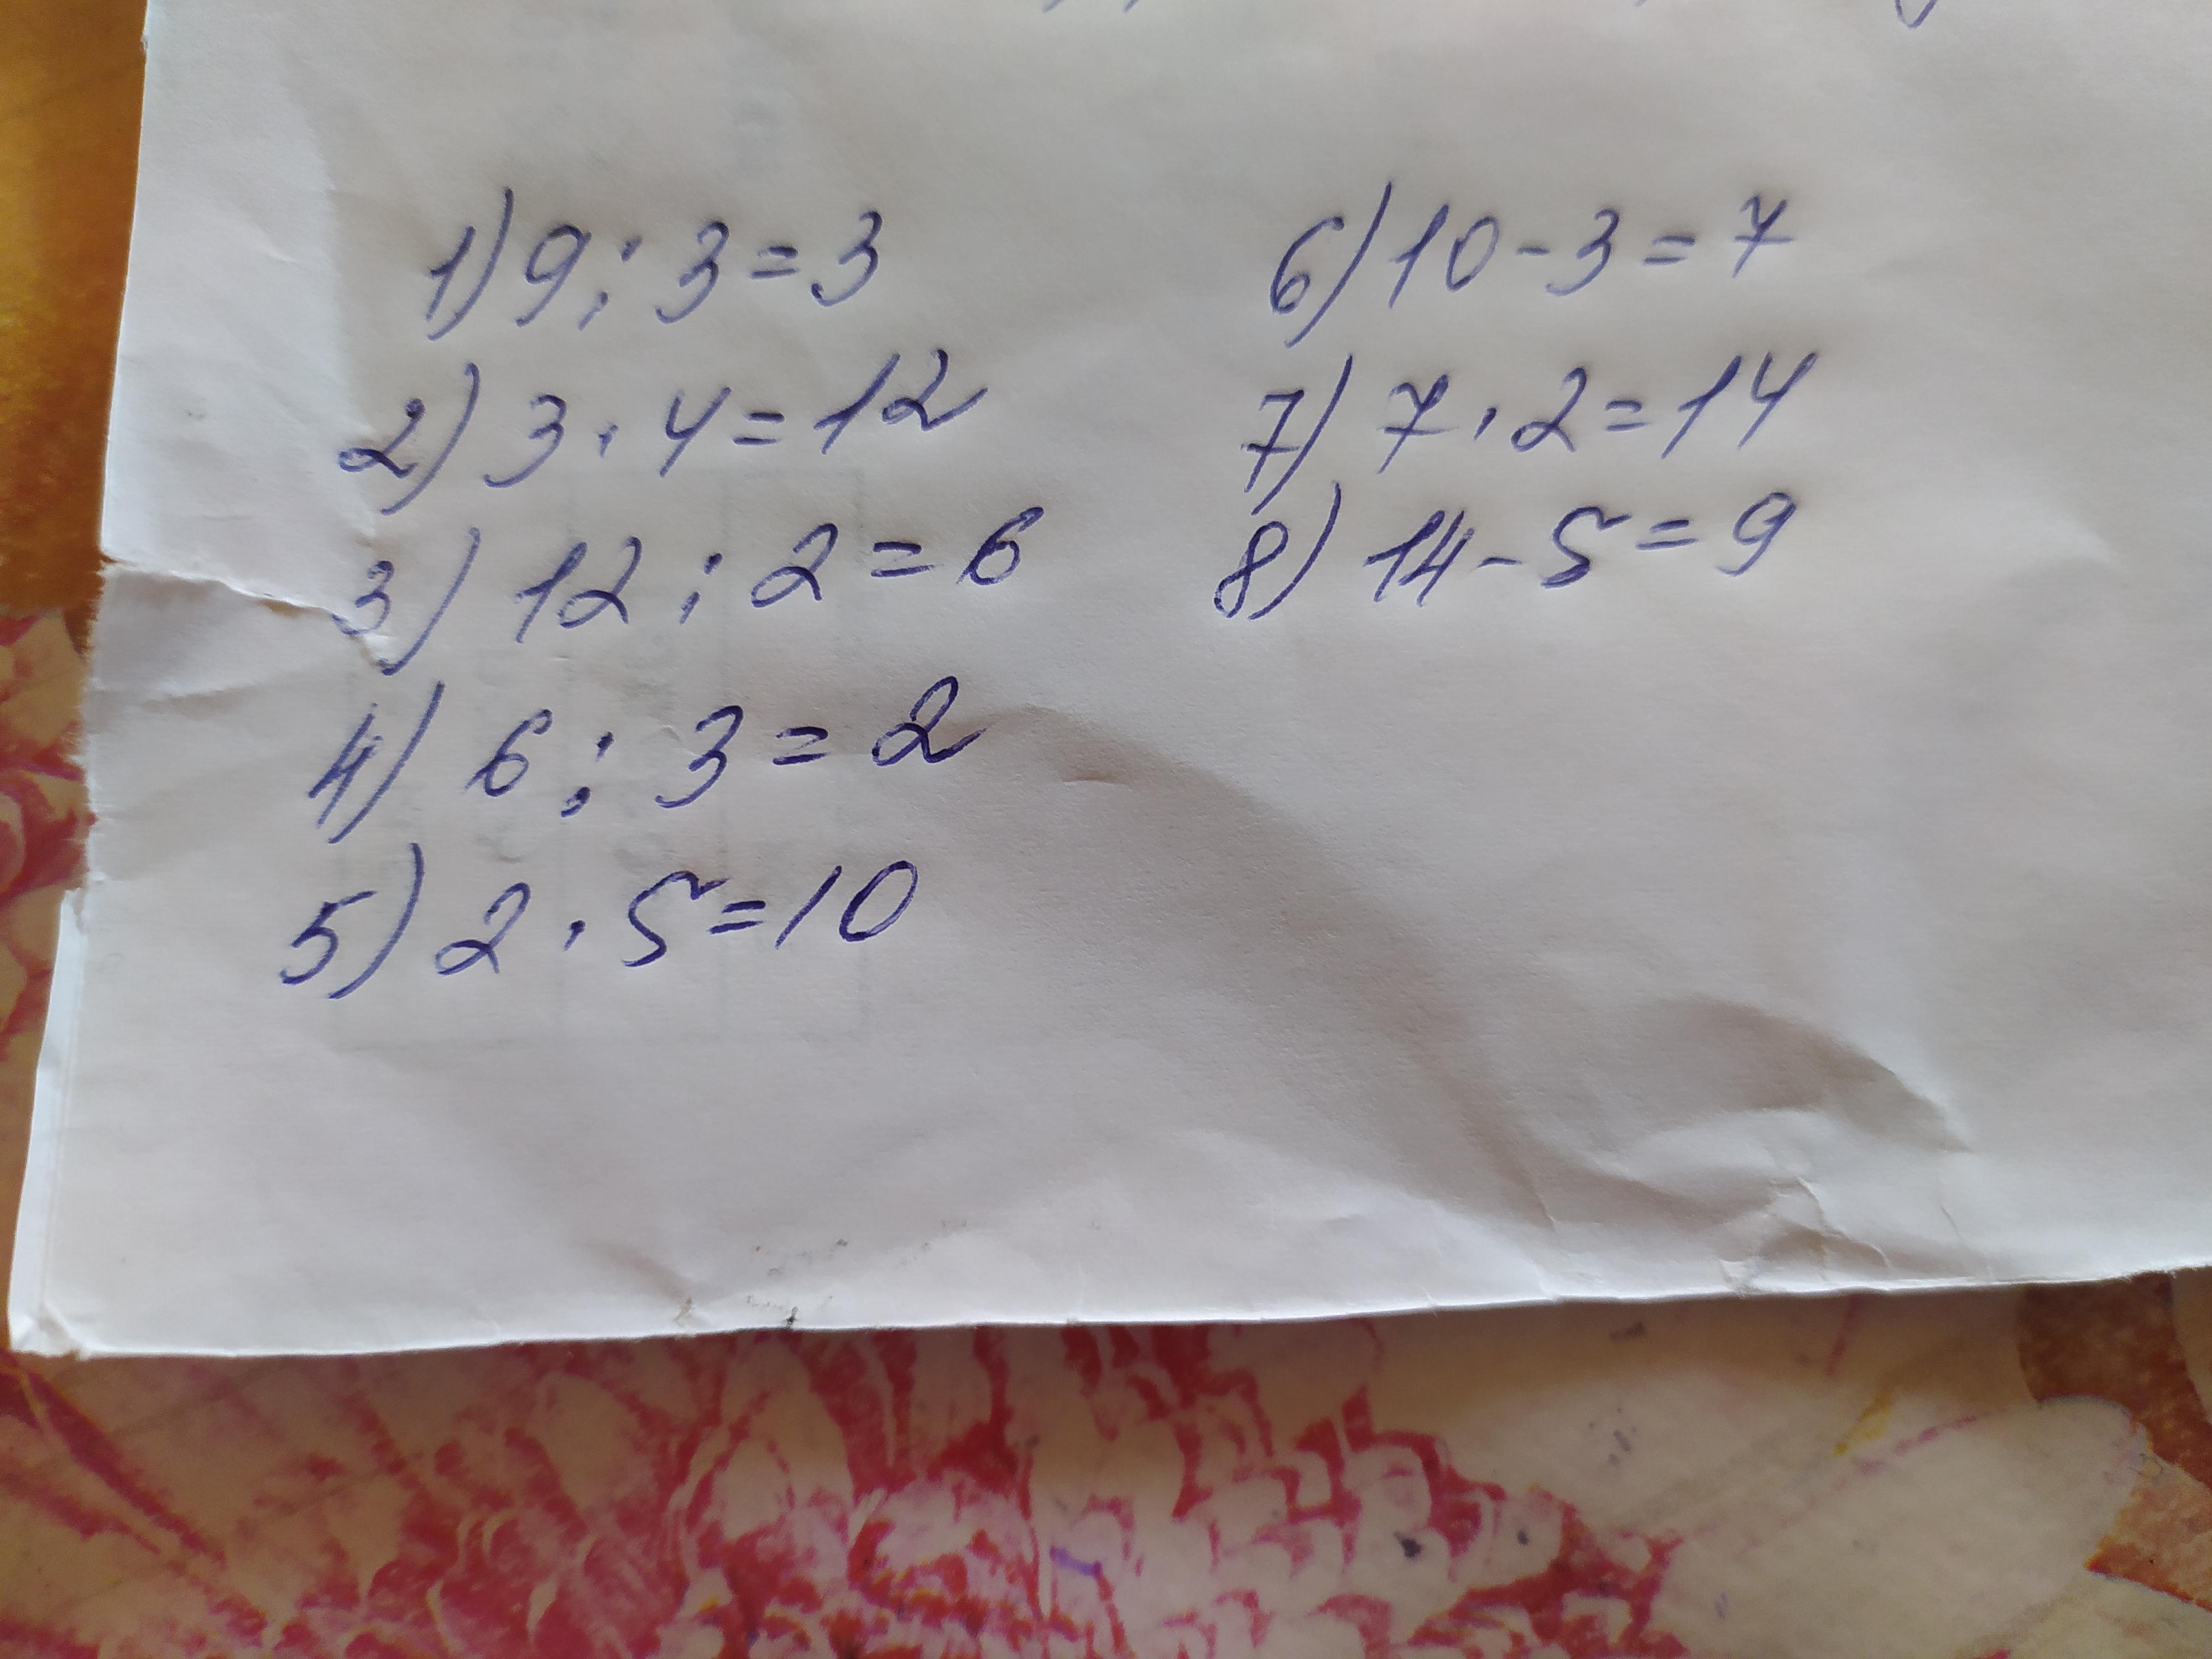 1) 9 : 3 = 3
2) 3 · 4 = 12
3) 12 : 2 = 6
4) 6 : 3 = 2
5) 2 · 5 = 10
6) 10 - 3 = 7
7) 7 · 2 = 14
8) 14 - 5 = 9